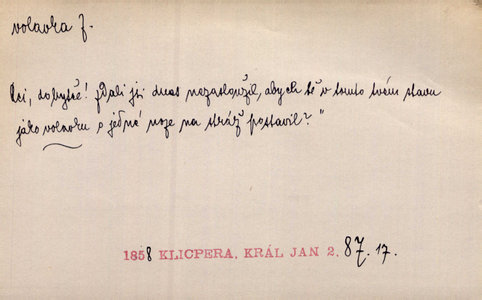 volavka f.
Rci, dobytče! „Dali jsi dnes nezasloužil, abych tě v tomto tvém stavu
jako volavku o jedné noze na stráž postavil?"
1858 KLICPERA, KRÁL JAN 2, 87, 17.